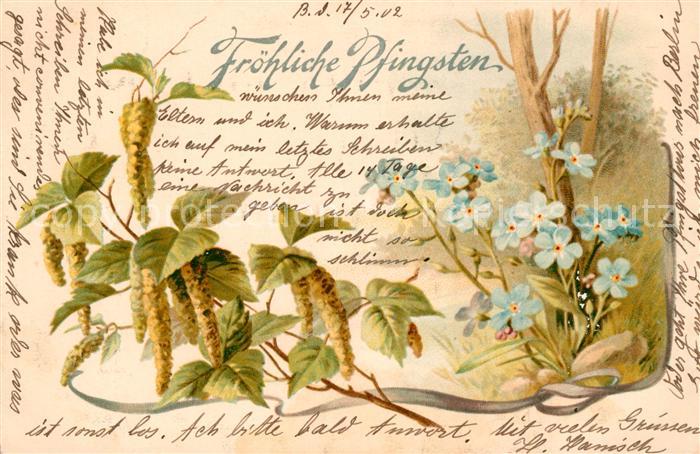 B. d. 17/5.02
Fröhliche Pfingsten
wünschen Ihnen meine
Eltern und ich. Warum erhalte
ich auf mein letztes Schreiben
keine Antwort. Alle 14 Tage
eine Nachricht zu
geben ist doch
nicht so
schlimm.
Habe ich in
meinen letzten
Schreiben Ihnen
nicht
gesagt oder sind Sie krank oder was
ist sonst los. Ach bitte bald Antwort. Mit vielen Grüssen
H. Hanisch
nach Berlin